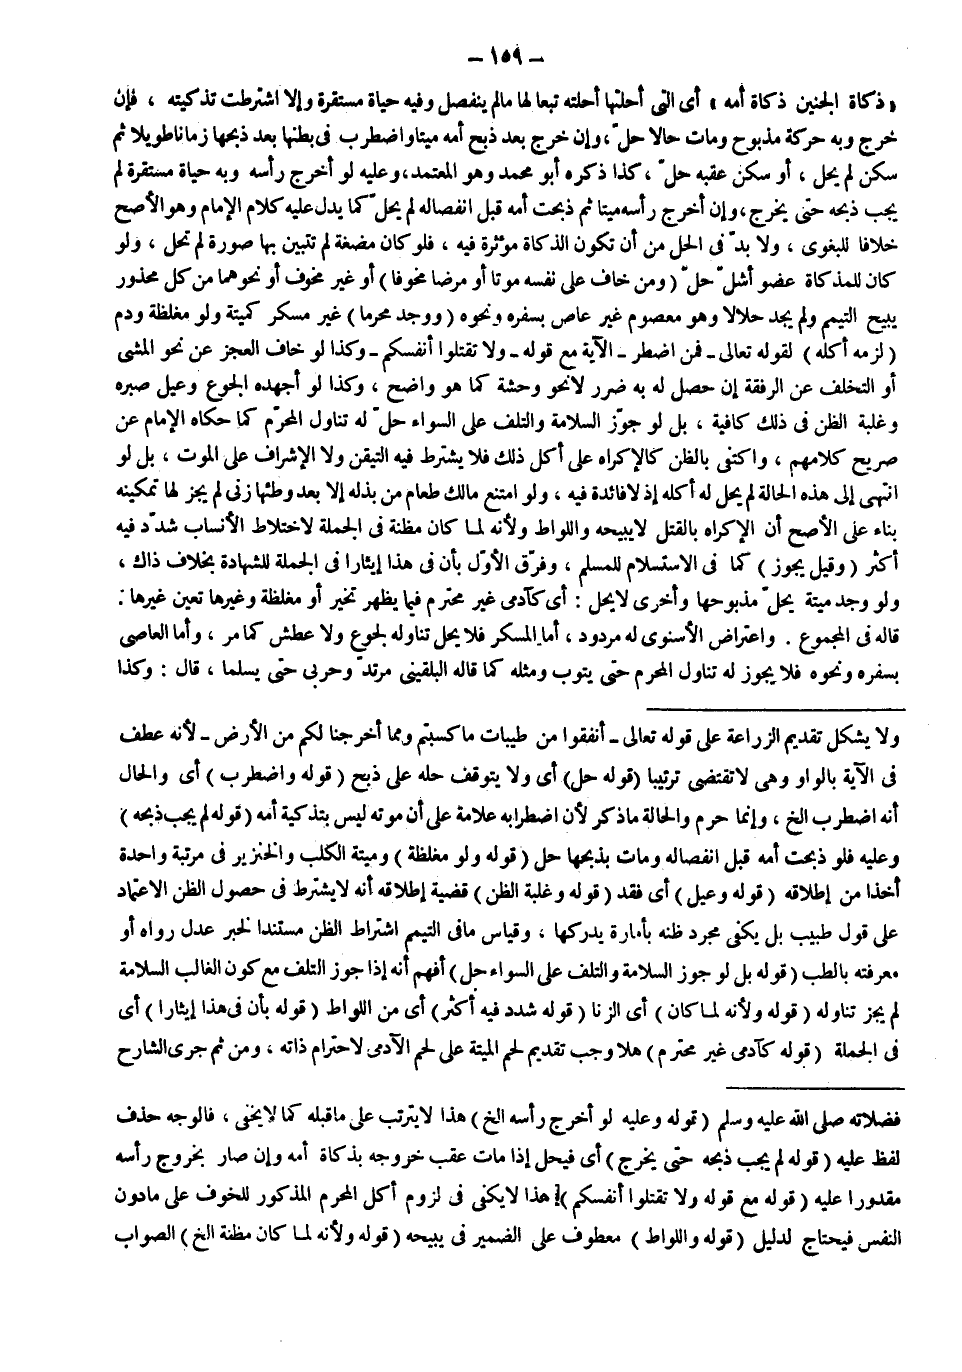 – ١٥٩ –
«ذكاة الجنين ذكاة أمه» أى التى أحلتها أحلته تبعا لها مالم ينفصل وفيه حياة مستقرة وإلا اشترطت تذكيته ، فإن
خرج وبه حركة مذبوح ومات حالا حلّ ، وإن خرج بعد ذبح أمه ميتا واضطرب فى بطنها بعد ذبحها زمانا طويلا ثم
سكن لم يحل ، أو سكن عقبه حلّ ، كذا ذكره أبو محمد وهو المعتمد ، وعليه لو أخرج رأسه وبه حياة مستقرة لم
يجب ذبحه حتى يخرج ، وإن أخرج رأسه ميتا ثم ذبحت أمه قبل انفصاله لم يحلّ كما يدل عليه كلام الإمام وهو الأصح
خلافا للبغوى ، ولا بدّ فى الحل من أن تكون الذكاة مؤثرة فيه ، فلو كان مضغة لم تتبين بها صورة لم تحل ، ولو
كان للمذكاة عضو أشلّ حلّ ( ومن خاف على نفسه موتا أو مرضا مخوفا ) أو غير مخوف أو نحوهما من كل محذور
يبيح التيمم ولم يجد حلالا وهو معصوم غير عاص بسفره ونحوه ( ووجد محرما ) غير مسكر كميتة ولو مغلظة ودم
( لزمه أكله ) لقوله تعالى ـ فمن اضطر ـ الآية مع قوله ـ ولا تقتلوا أنفسكم ـ وكذا لو خاف العجز عن نحو المشى
أو التخلف عن الرفقة إن حصل له به ضرر لانحو وحشة كما هو واضح ، وكذا لو أجهده الجوع وعيل صبره
وغلبة الظن فى ذلك كافية ، بل لو جوّز السلامة والتلف على السواء حلّ له تناول المحرّم كما حكاه الإمام عن
صريح كلامهم ، واكتفى بالظن كالإكراه على أكل ذلك فلا يشترط فيه التيقن ولا الإشراف على الموت ، بل لو
انتهى إلى هذه الحالة لم يحل له أكله إذ لافائدة فيه ، ولو امتنع مالك طعام من بذله إلا بعد وطئها زنى لم يجز لها تمكينه
بناء على الأصح أن الإكراه بالقتل لايبيحه واللواط ولأنه لما كان مظنة فى الجملة لاختلاط الأنساب شدّد فيه
أكثر ( وقيل يجوز ) كما فى الاستسلام للمسلم ، وفرّق الأوّل بأن فى هذا إيثارا فى الجملة للشهادة بخلاف ذاك ،
ولو وجد ميتة يحلّ مذبوحها وأخرى لايحل : أى كآدمى غير محترم فيما يظهر تخير أو مغلظة وغيرها تعين غيرها :
قاله فى المجموع . واعتراض الأسنوى له مردود ، أما المسكر فلا يحل تناوله لجوع ولا عطش كما مر ، وأما العاصى
بسفره ونحوه فلا يجوز له تناول المحرم حتى يتوب ومثله كما قاله البلقينى مرتدّ وحربى حتى يسلما ، قال : وكذا
ولا يشكل تقديم الزراعة على قوله تعالى ـ أنفقوا من طيبات ماكسبتم ومما أخرجنا لكم من الأرض ـ لأنه عطف
فى الآية بالواو وهى لاتقتضى ترتيبا (قوله حل) أى ولا يتوقف حله على ذبح ( قوله واضطرب ) أى والحال
أنه اضطرب الخ ، وإنما حرم والحالة ماذكر لأن اضطرابه علامة على أن موته ليس بتذكية أمه (قوله لم يجب ذبحه )
وعليه فلو ذبحت أمه قبل انفصاله ومات بذبحها حل ( قوله ولو مغلظة ) وميتة الكلب والخنزير فى مرتبة واحدة
أخذا من إطلاقه ( قوله وعيل ) أى فقد ( قوله وغلبة الظن ) قضية إطلاقه أنه لايشترط فى حصول الظن الاعتماد
على قول طبيب بل يكفى مجرد ظنه بأمارة يدركها ، وقياس مافى التيمم اشتراط الظن مستندا لخبر عدل رواه أو
معرفته بالطب ( قوله بل لو جوز السلامة والتلف على السواء حل ) أفهم أنه إذا جوز التلف مع كون الغالب السلامة
لم يجز تناوله ( قوله ولأنه لما كان ) أى الزنا ( قوله شدد فيه أكثر ) أى من اللواط ( قوله بأن فى هذا إيثارا ) أى
فى الجملة ( قوله كآدمى غير محترم ) هلا وجب تقديم لحم الميتة على لحم الآدمى لاحترام ذاته ، ومن ثم جرى الشارح
فضلاته صلى الله عليه وسلم ( قوله وعليه لو أخرج رأسه الخ ) هذا لايترتب على ماقبله كما لايخفى ، فالوجه حذف
لفظ عليه ( قوله لم يجب ذبحه حتى يخرج ) أى فيحل إذا مات عقب خروجه بذكاة أمه وإن صار بخروج رأسه
مقدورا عليه ( قوله مع قوله ولا تقتلوا أنفسكم ) هذا لايكفى فى لزوم أكل المحرم المذكور للخوف على مادون
النفس فيحتاج لدليل ( قوله واللواط ) معطوف على الضمير فى يبيحه ( قوله ولأنه لما كان مظنة الخ ) الصواب